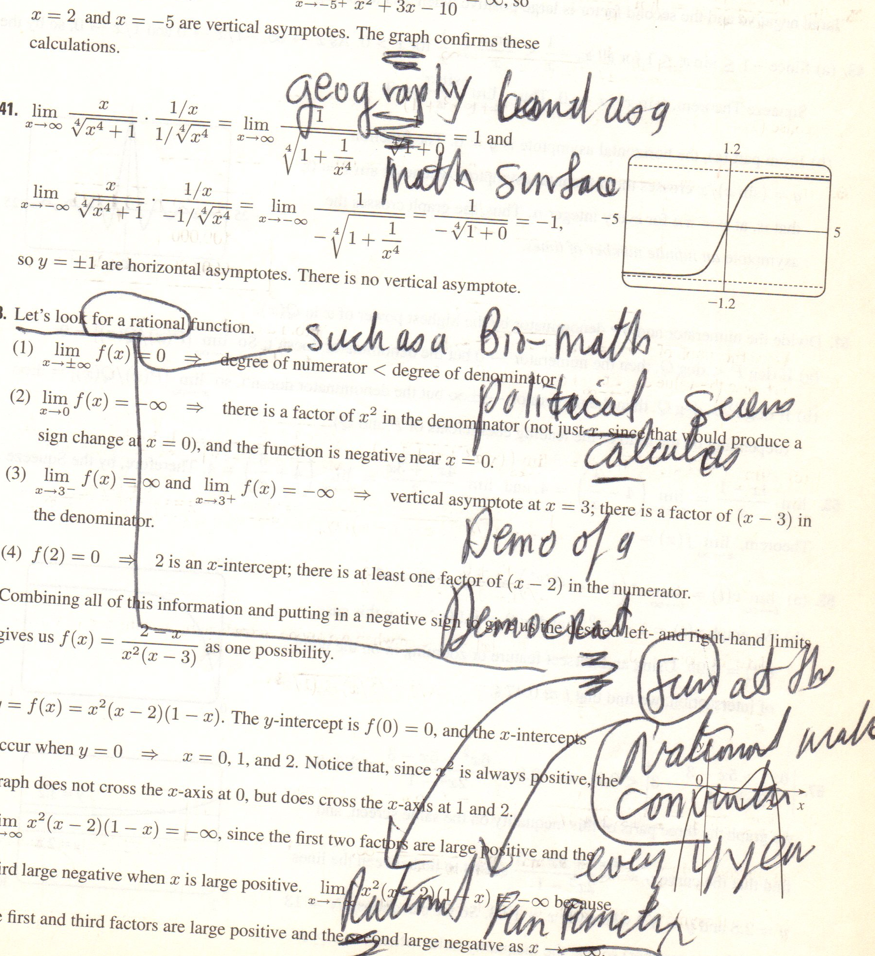 x→−5⁺ x² + 3x − 10 = ∞, so
x = 2 and x = −5 are vertical asymptotes. The graph confirms these
calculations.
geography
41. lim x→∞ x/⁴√(x⁴ + 1) · (1/x)/(1/⁴√x⁴) = lim x→∞ 1/⁴√(1 + 1/x⁴) = 1/⁴√(1+0) = 1 and
math surface
1.2
lim x→−∞ x/⁴√(x⁴ + 1) · (1/x)/(−1/⁴√x⁴) = lim x→−∞ 1/(−⁴√(1 + 1/x⁴)) = 1/(−⁴√(1+0)) = −1,
−5
5
−1.2
so y = ±1 are horizontal asymptotes. There is no vertical asymptote.
Let's look for a rational function.
such as a Bio-math
(1) lim x→±∞ f(x) = 0 ⇒ degree of numerator < degree of denominator
political
(2) lim x→0 f(x) = −∞ ⇒ there is a factor of x² in the denominator (not just x, since that would produce a
sign change at x = 0), and the function is negative near x = 0.
calculus
(3) lim x→3⁻ f(x) = ∞ and lim x→3⁺ f(x) = −∞ ⇒ vertical asymptote at x = 3; there is a factor of (x − 3) in
the denominator.
Demo of a
(4) f(2) = 0 ⇒ 2 is an x-intercept; there is at least one factor of (x − 2) in the numerator.
Democrat
Combining all of this information and putting in a negative sign to give us the desired left- and right-hand limits
gives us f(x) = (2 − x)/(x²(x − 3)) as one possibility.
Fun at the
= f(x) = x²(x − 2)(1 − x). The y-intercept is f(0) = 0, and the x-intercepts
National
occur when y = 0 ⇒ x = 0, 1, and 2. Notice that, since x² is always positive, the
0
x
graph does not cross the x-axis at 0, but does cross the x-axis at 1 and 2.
lim x→∞ x²(x − 2)(1 − x) = −∞, since the first two factors are large positive and the
every 4 year
third large negative when x is large positive. lim x→−∞ x²(x − 2)(1 − x) = −∞ because
Rational Fun Function
first and third factors are large positive and the second large negative as x → −∞.